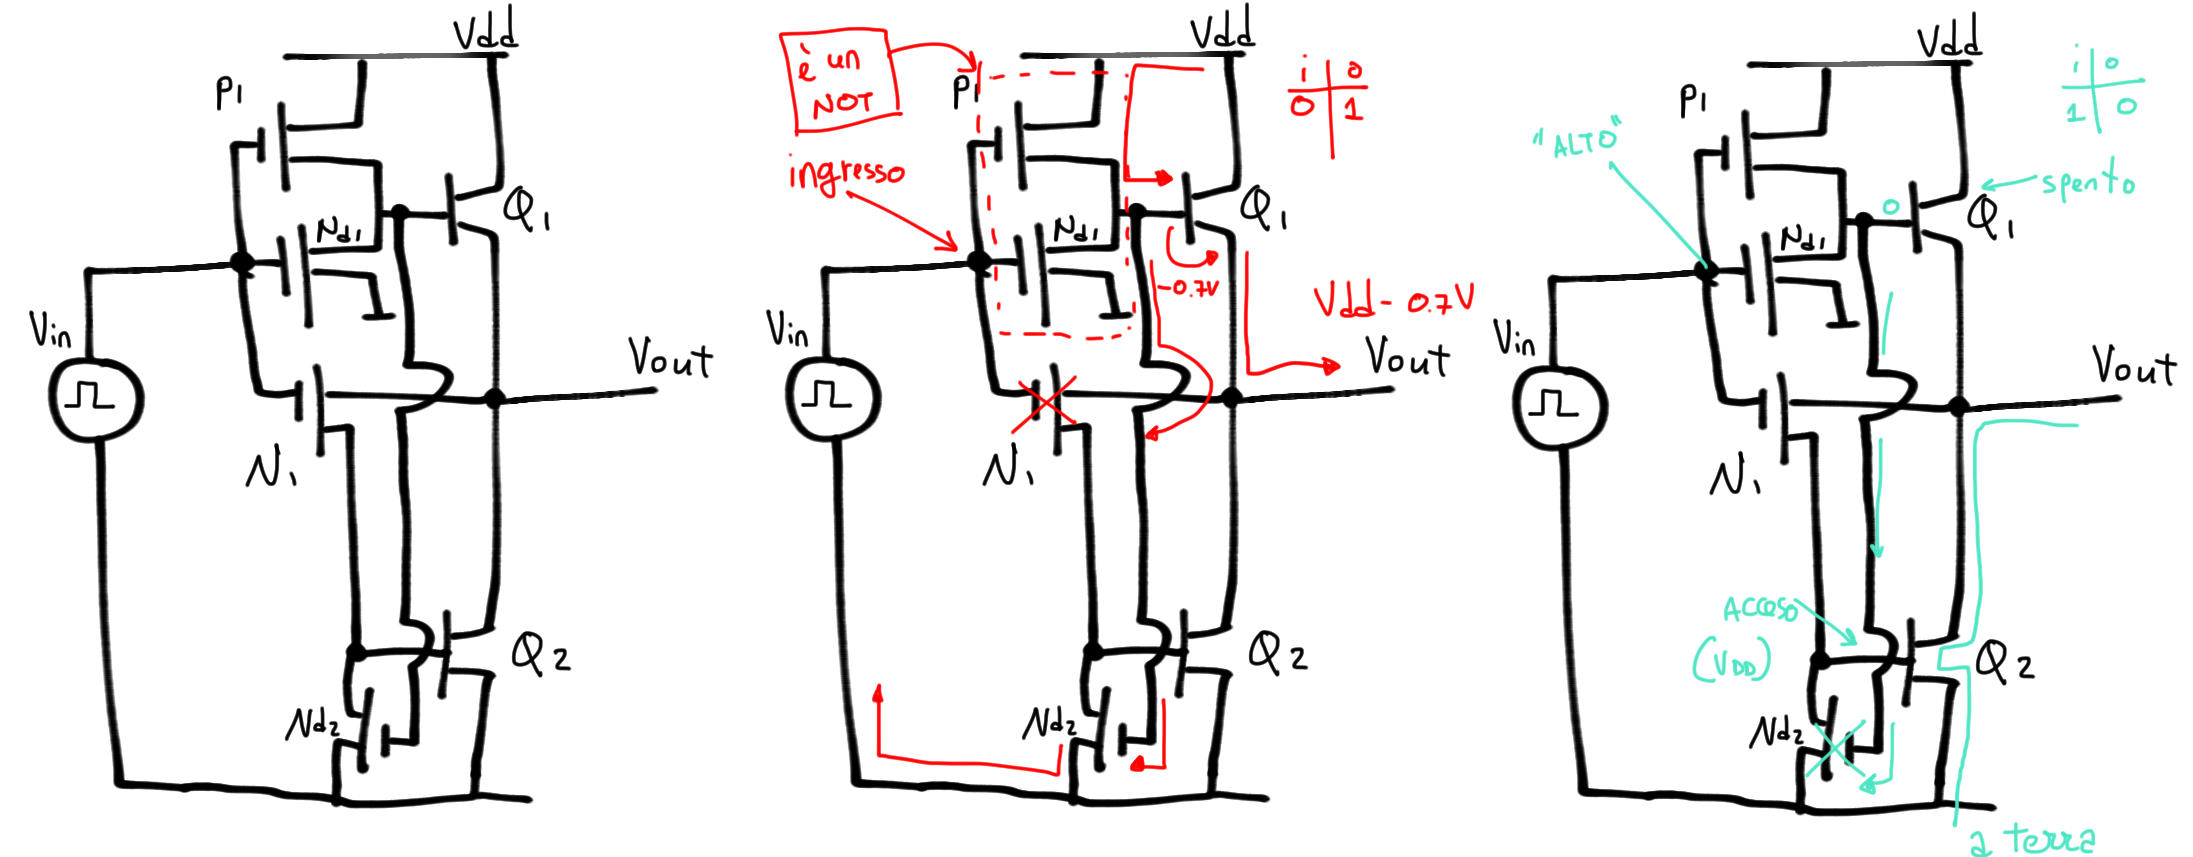 Vdd
P1
Q1
Nd1
Vin
Vout
N1
Q2
Nd2
è un
NOT
ingresso
Vdd
i o
0 1
P1
Q1
Nd1
-0.7V
Vdd - 0.7V
Vin
Vout
N1
Q2
Nd2
Vdd
i o
1 0
P1
"ALTO"
spento
0
Q1
Nd1
Vin
Vout
N1
ACCESO
(VDD)
Q2
Nd2
a terra